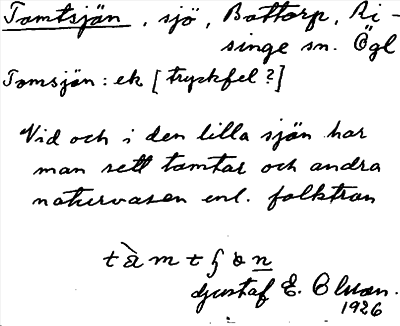 Tomtsjön, sjö, Bottorp, Ri-
singe sn. Ögl
Tomsjön: ek [tryckfel?]
Vid och i den lilla sjön har
man sett tomtar och andra
naturvasen enl. folktron
Gustaf E.
1926